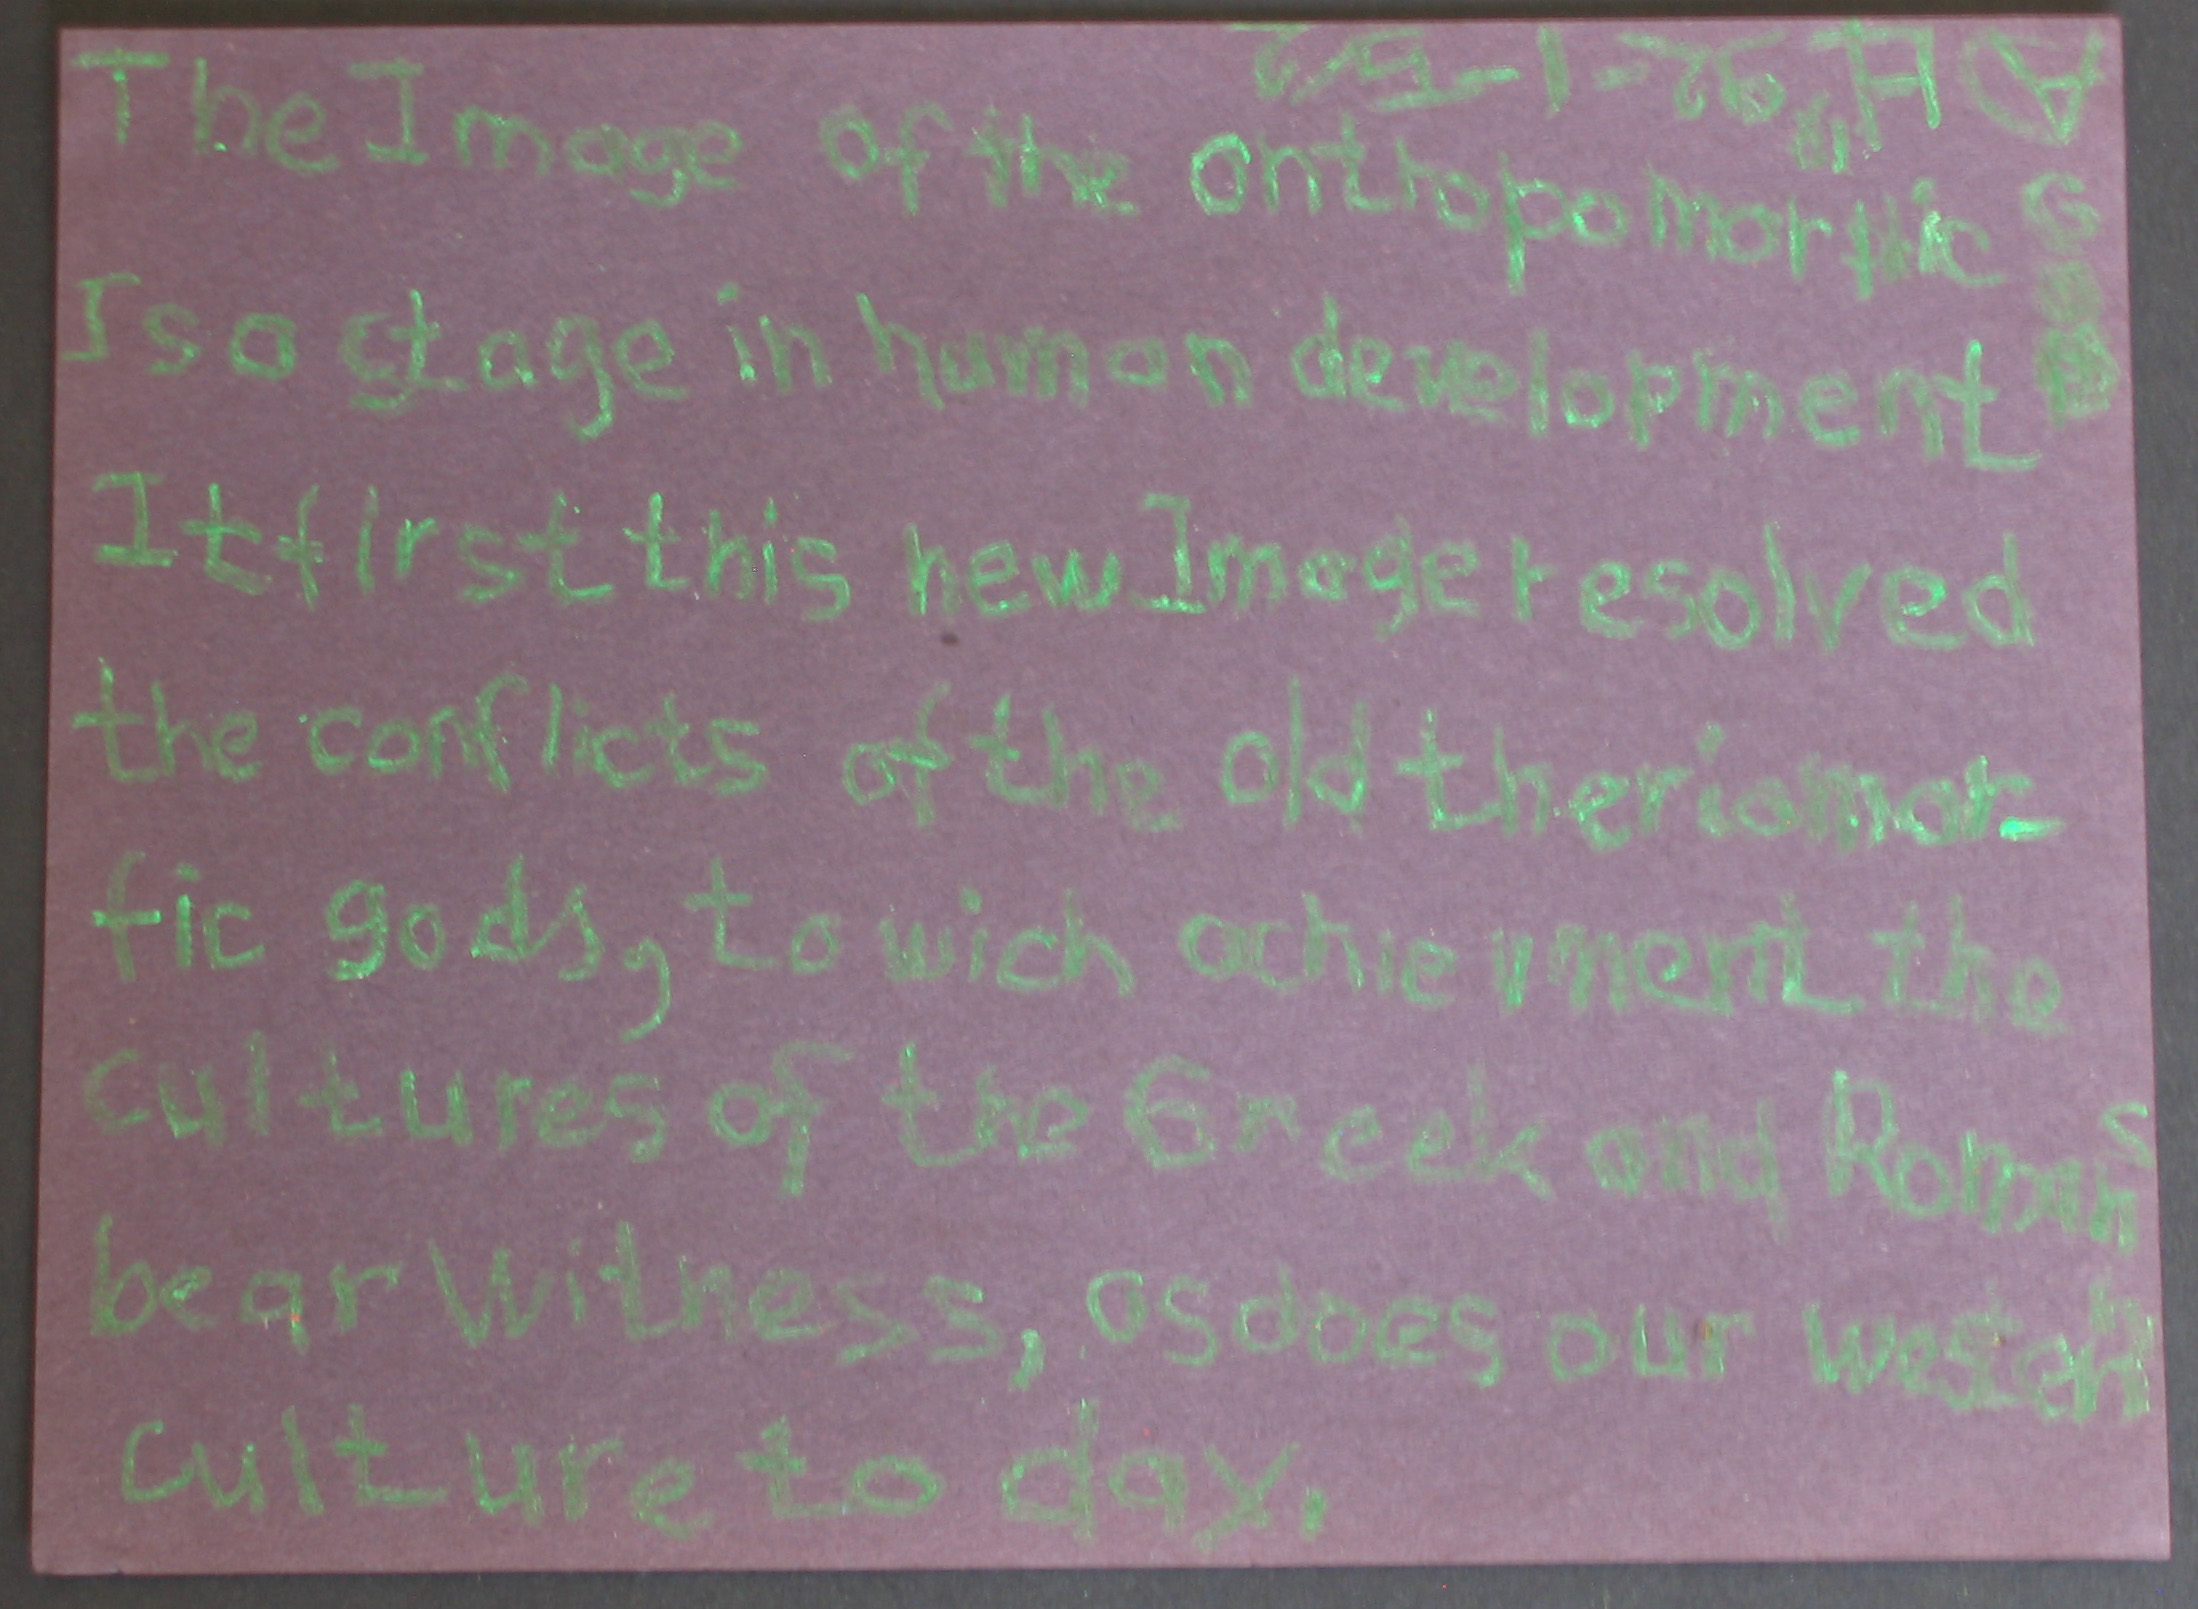 The Image of the antropomorfic
Is a stage in human development
It first this new Image resolved
the conflicts of the old theriomor-
fic gods, to wich achievment the
cultures of the Greek and Romans
bear Witness, as does our western
culture to day.